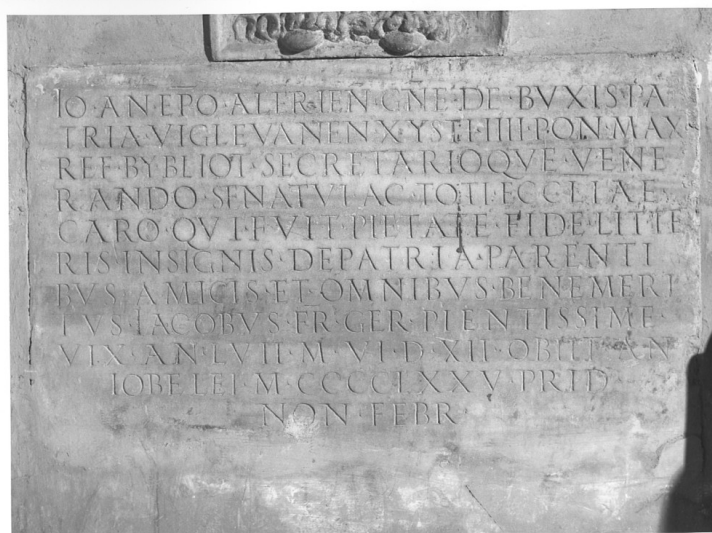 IO·AN·EPO·ALERIEN̄·GNE·DE·BVXIS·PA
TRIA·VIGLEVANEN·XYSTI·IIII·PON·MAX·
REF·BYBLIOT·SECRETARIOQVE·VENE
RANDO·SENATVI·AC·TOTI·ECCLIAE
CARO·QVI·FVIT·PIETATE·FIDE·LITTE
RIS·INSIGNIS·DE·PATRIA·PARENTI
BVS·AMICIS·ET·OMNIBVS·BENEMERI
TVS·IACOBVS·FR·GER·PIENTISSIME·
VIX·AN·LVII·M·VI·D·XII·OBIIT·AN
IOBELEI·M·CCCCCLXXV·PRID
NON·FEBR